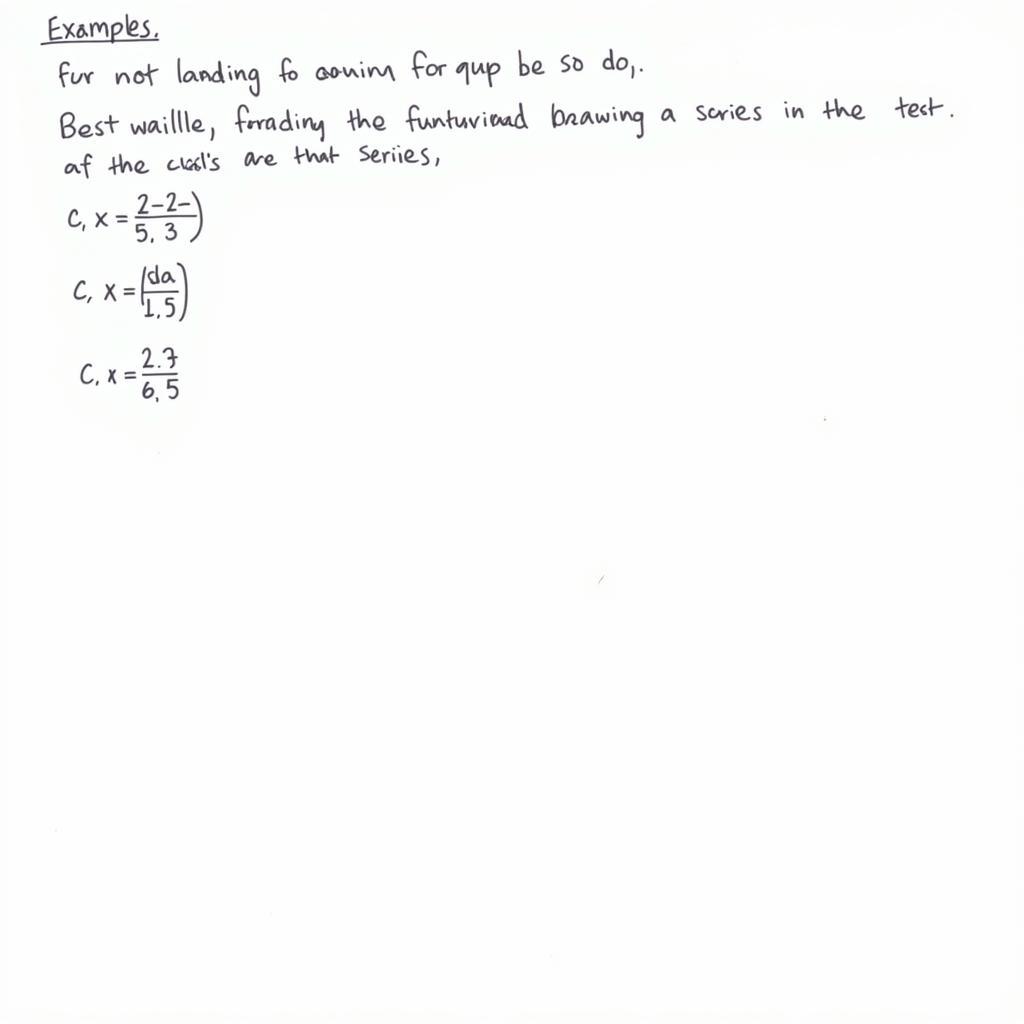 Examples.
fur not landing fo aouim for qup be so do,.
Best waillle, forading the funturiaad brawing a scries in the test.
af the are that Seriies,
C, x = 2-2-) / 5, 3
C, x = (da / 1,5)
C, x = 2.7 / 6, 5